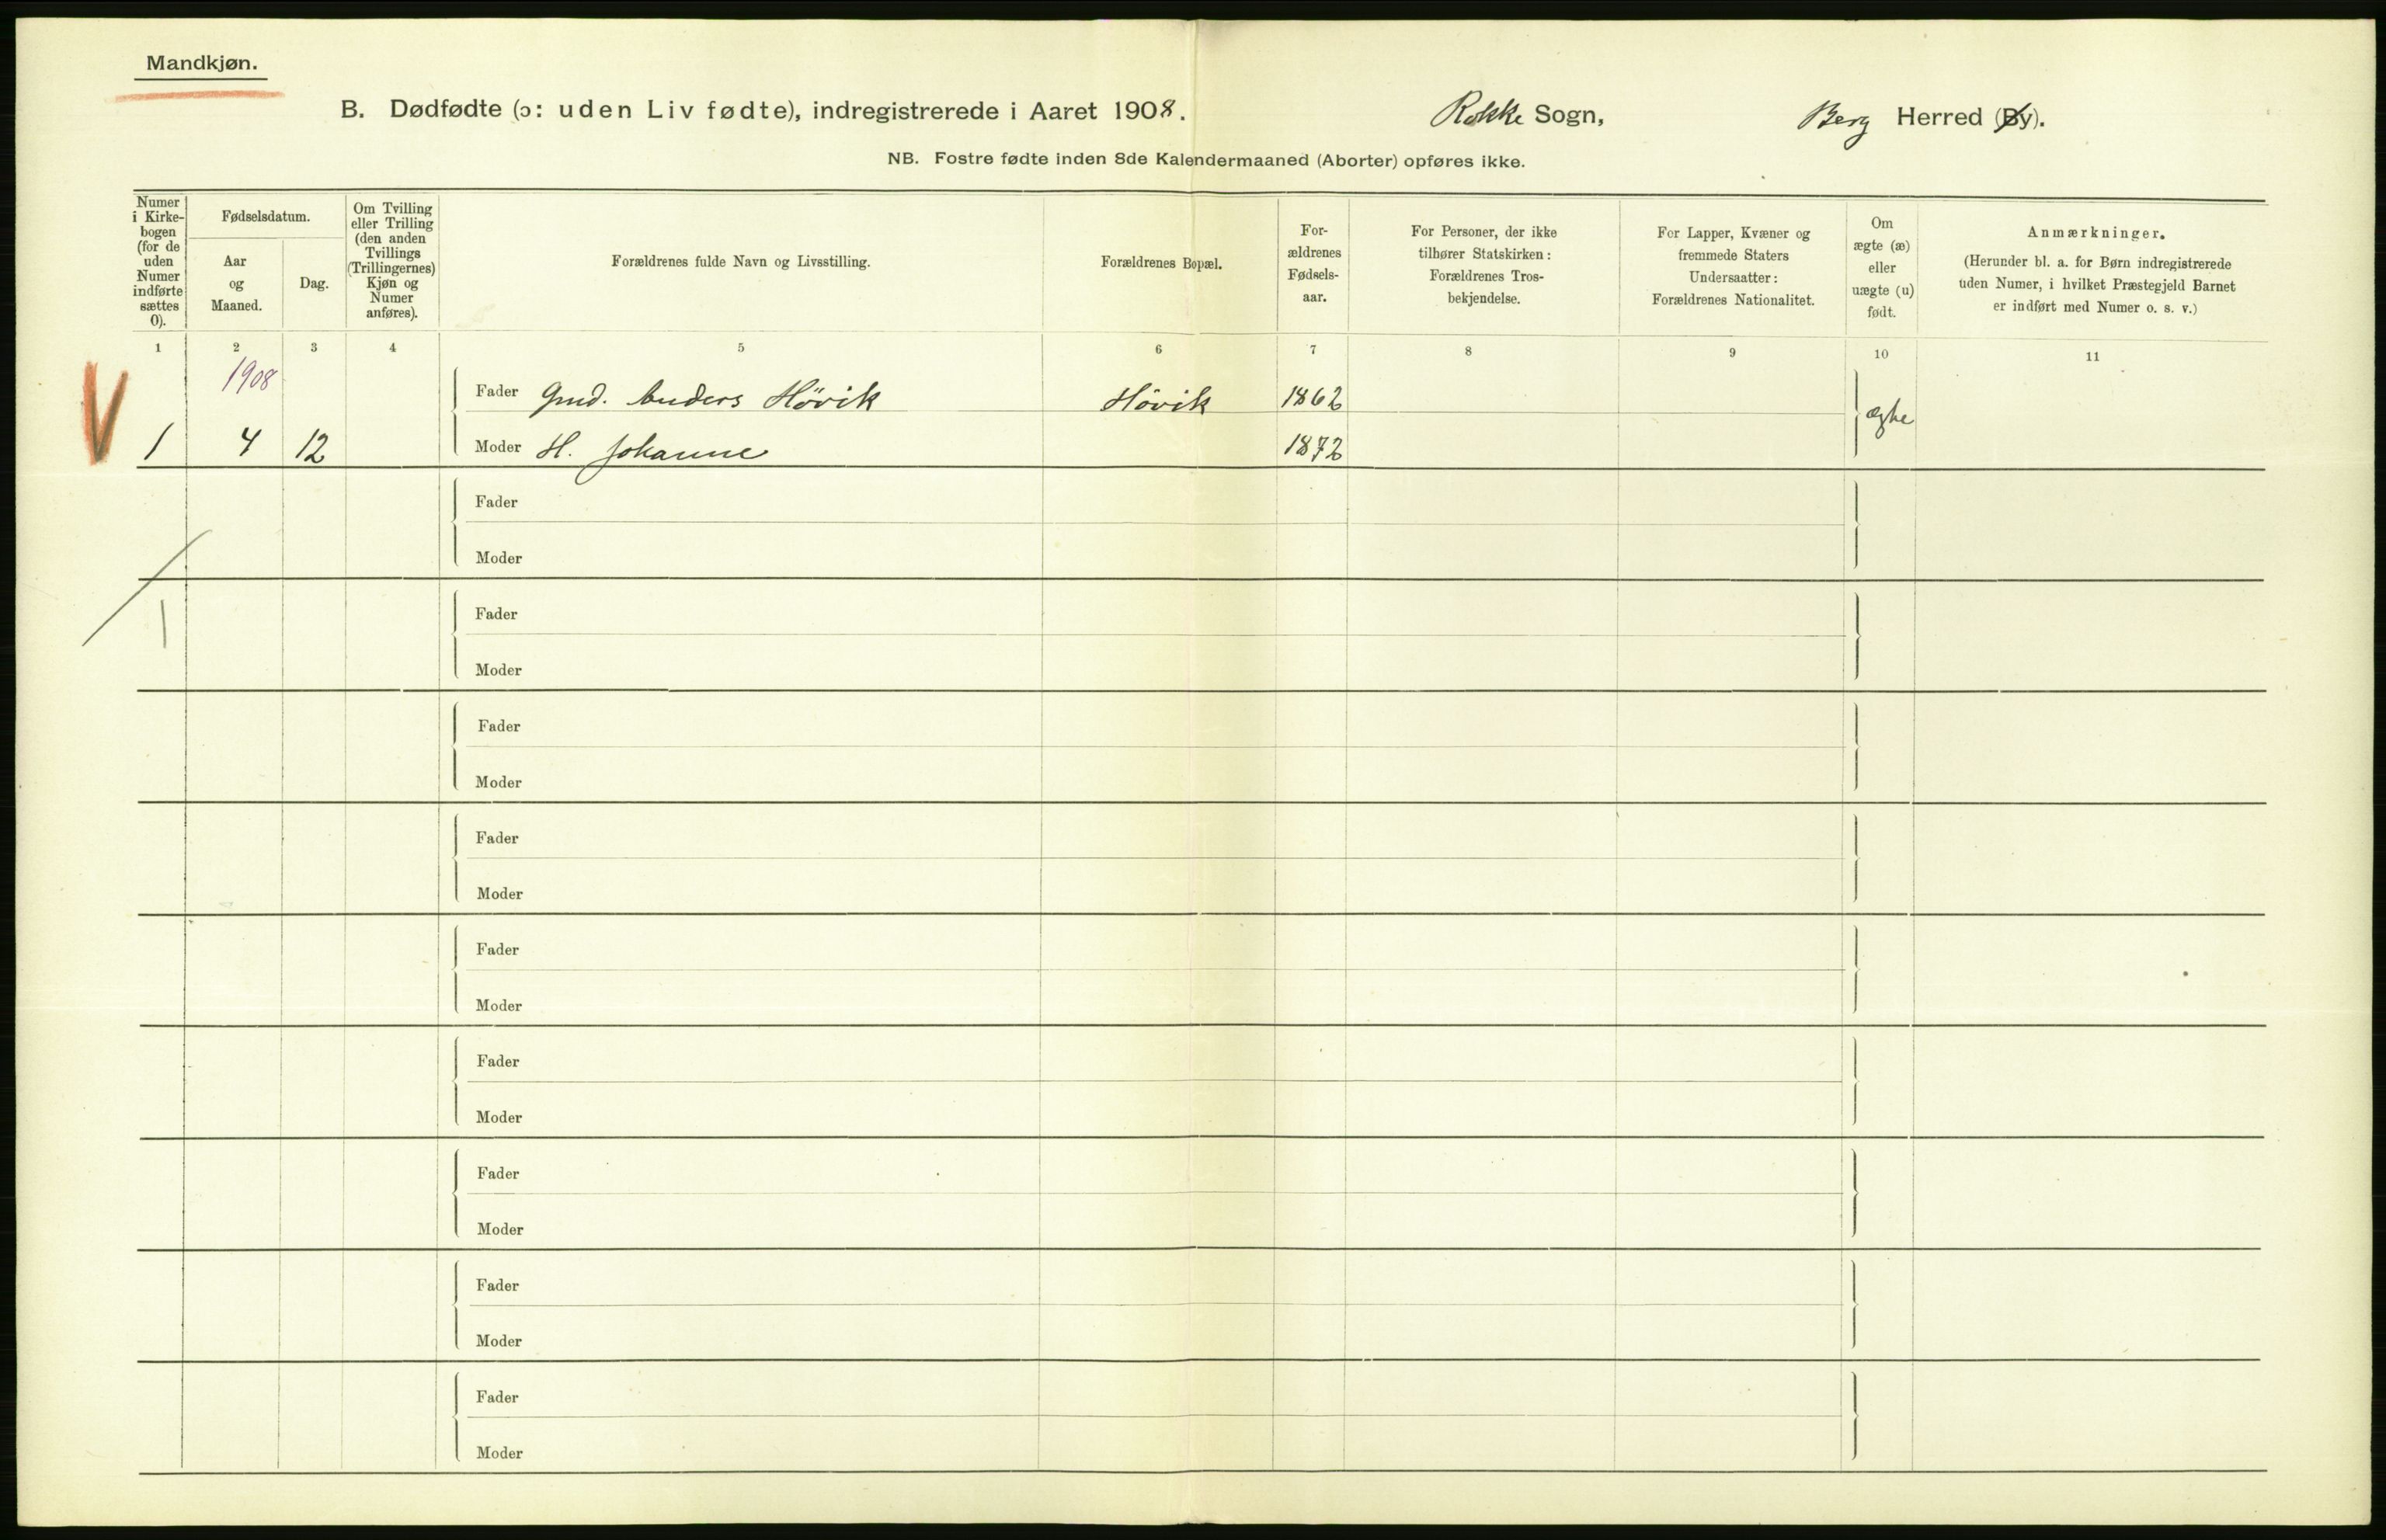 Mandkjøn.
B. Dødfødte (ɔ: uden Liv fødte), indregistrerede i Aaret 1908. Rokke Sogn, Berg Herred (By).
NB. Fostre fødte inden 8de Kalendermaaned (Aborter) opføres ikke.
Numer
i Kirke-
bogen
(for de
uden
Numer
indførte
sættes
0).
Fødselsdatum.
Aar
og
Maaned.
Dag.
Om Tvilling
eller Trilling
(den anden
Tvillings
(Trillingernes)
Kjøn og
Numer
anføres).
Forældrenes fulde Navn og Livsstilling.
Forældrenes Bopæl.
For-
ældrenes
Fødsels-
aar.
For Personer, der ikke
tilhører Statskirken:
Forældrenes Tros-
bekjendelse.
For Lapper, Kvæner og
fremmede Staters
Undersaatter:
Forældrenes Nationalitet.
Om
ægte (æ)
eller
uægte (u)
født.
Anmærkninger.
(Herunder bl. a. for Børn indregistrerede
uden Numer, i hvilket Præstegjeld Barnet
er indført med Numer o. s. v.)
1 2 3 4 5 6 7 8 9 10 11
1908
Fader Gmd. Anders Hövik Hövik 1862
ægte
V 1 4 12 Moder H. Johanne 1872
Fader
Moder
1
Fader
Moder
Fader
Moder
Fader
Moder
Fader
Moder
Fader
Moder
Fader
Moder
Fader
Moder
Fader
Moder